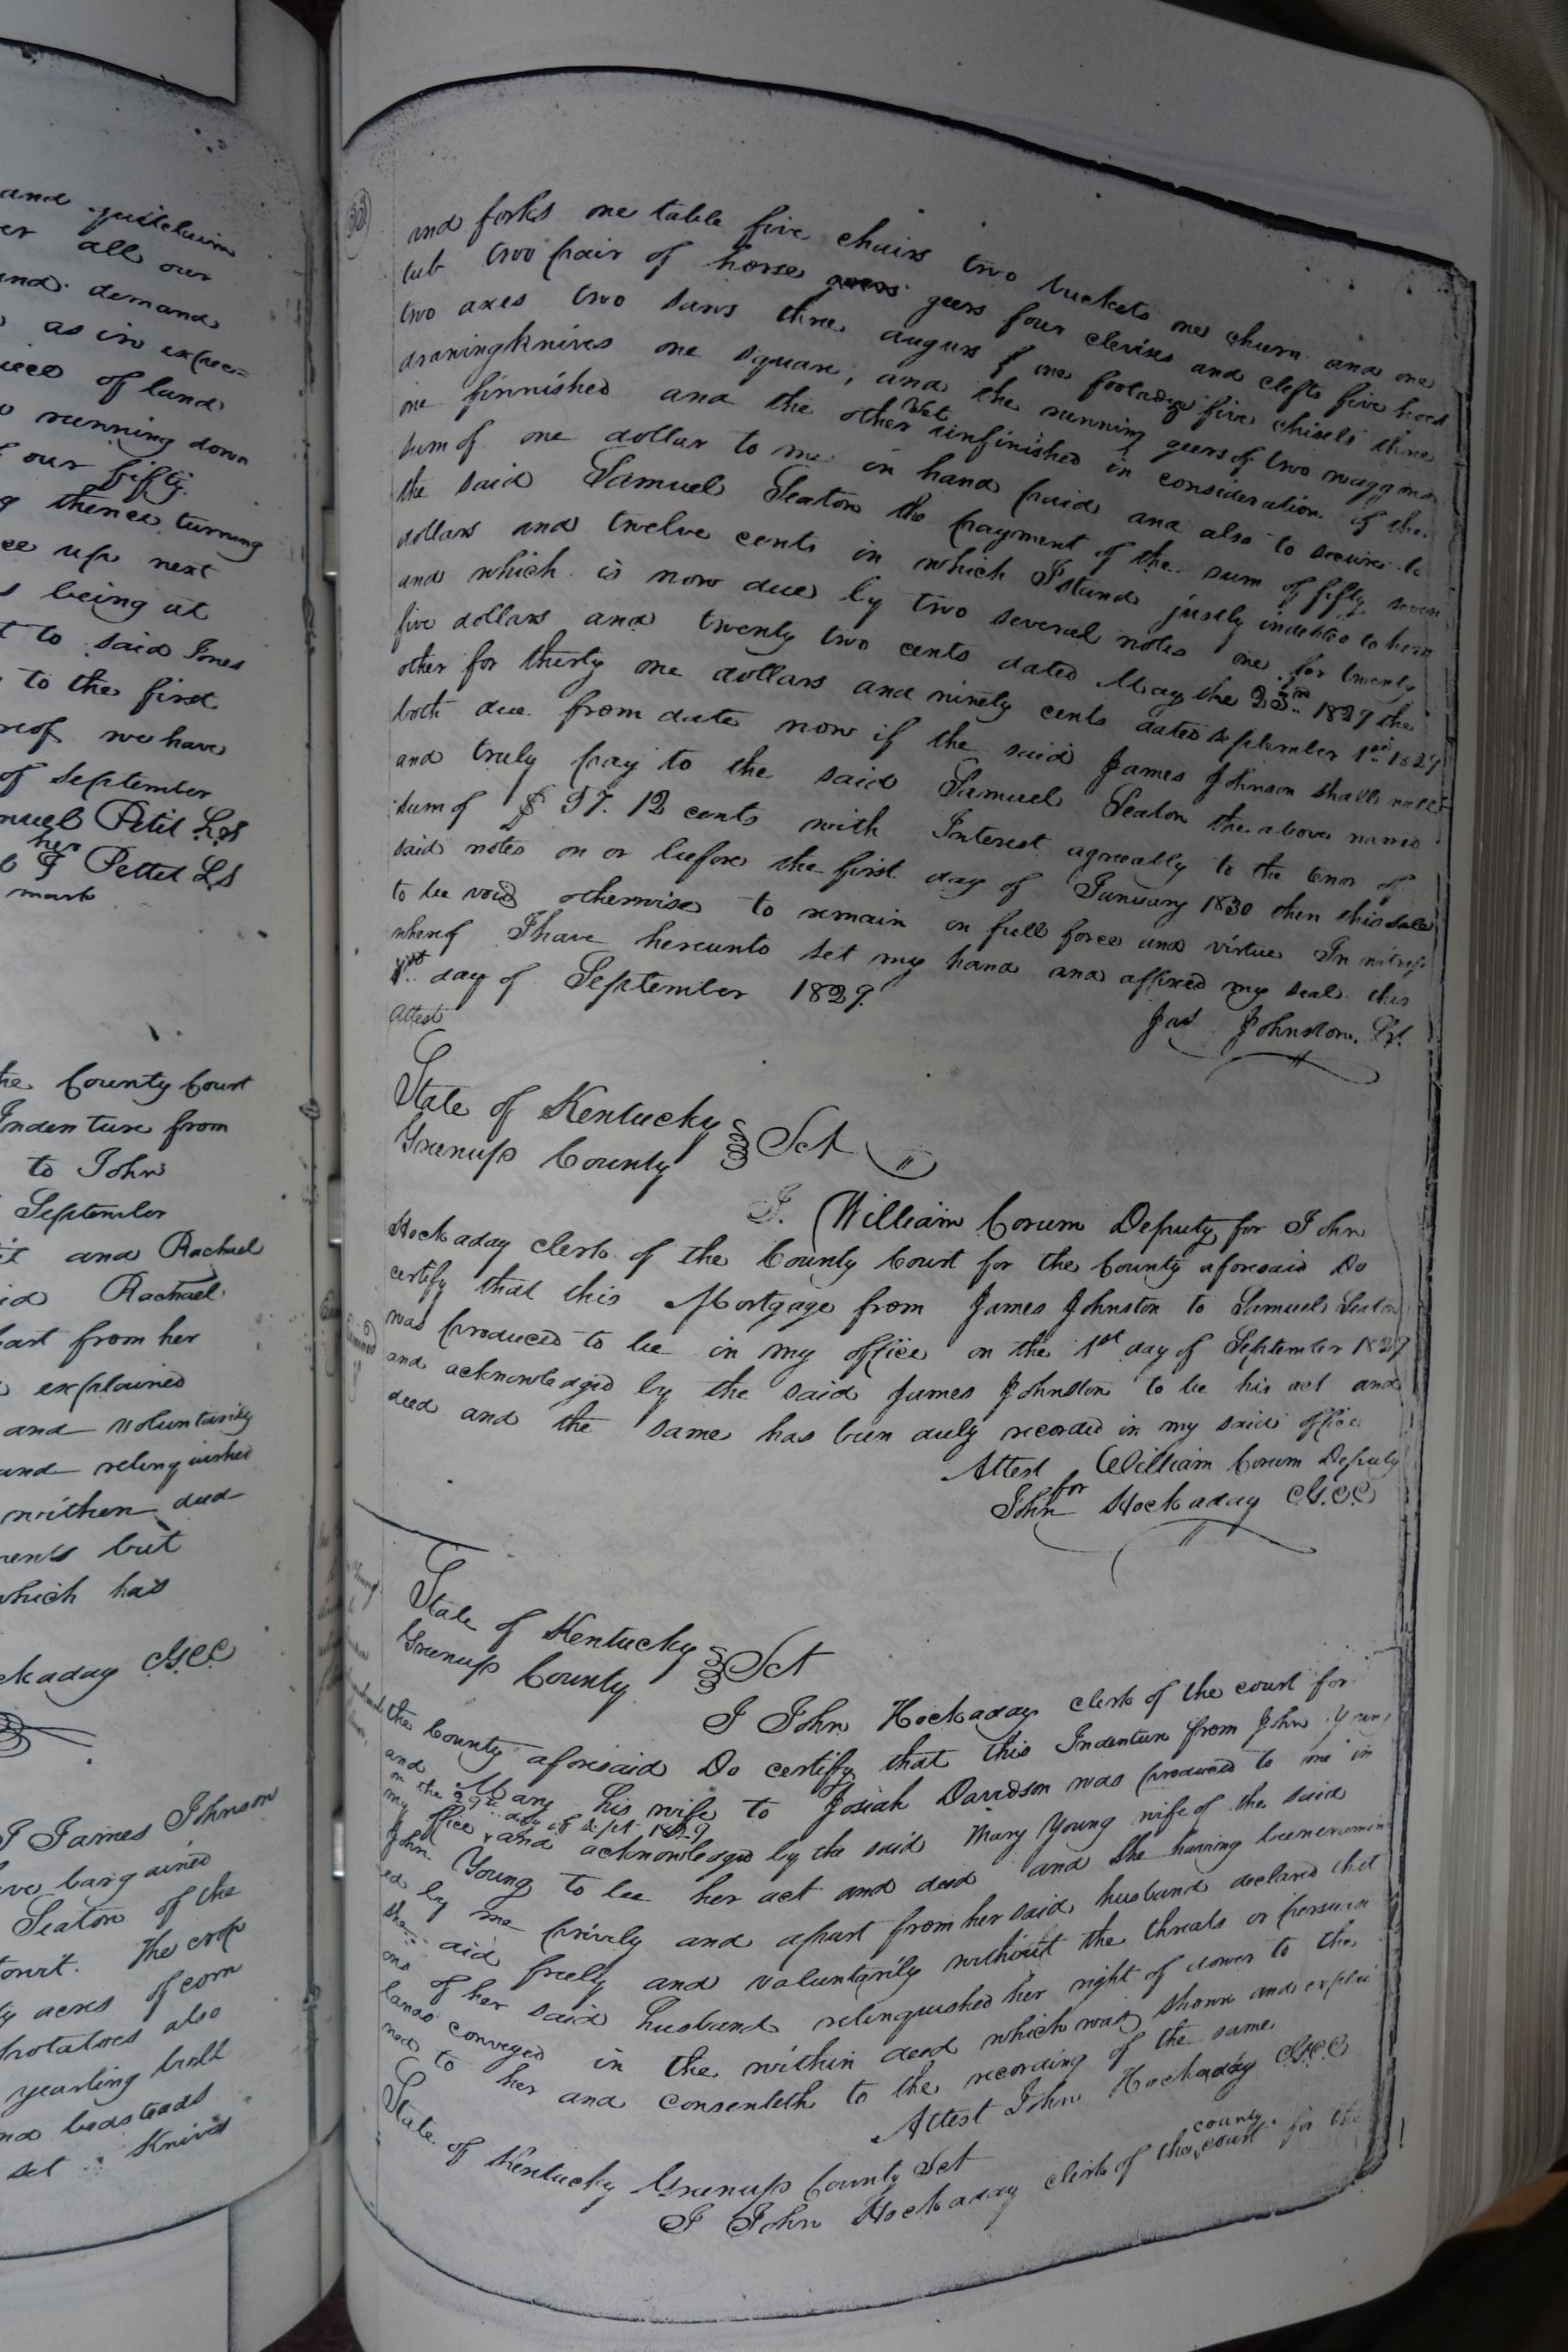 and quitclaim
er all our
and demand
as in expec=
iece of land
running down
our fifty
thence turning
ce up next
s being at
t to said Jones
to the first
reof we have
of September
muel Petit LS
her
Pettet LS
mark
he County Court
Indenture from
to John
September
it and Rachael
id Rachael
part from her
explained
and voluntarily
and relinquished
within deed
ments but
which has
ckaday C.G.C.C
I James Johnson
ve bargained
Seaton of the
towit. The crop
ty acres of corn
potatoes also
yearling bull
nd bedsteads
set Knives
and forks one table five chairs two buckets one churn and one
tub two pair of horse geers geers four clevises and clefts five hoes
two axes two saws three augurs & one footadze five chisels three
drawingknives one square, and the running geers of two waggons
one finnished and the other yet unfinished in consideration of the
sum of one dollar to me in hand paid and also to secure to
the said Samuel Seaton the payment of the sum of fifty seven
dollars and twelve cents in which I stand justly indebted to him
and which is now due by two several notes one for twenty
five dollars and twenty two cents dated May the 23rd 1829 the
other for thirty one dollars and ninety cents dated September 1st 1829
both due from date now if the said James Johnson shall well
and truly pay to the said Samuel Seaton the above named
sum of $57.12 cents with Interest agreeally to the tenor of
said notes on or before the first day of January 1830 then this sale
to be void otherwise to remain on full force and virtue In witness
whereof I have hereunto set my hand and affixed my seal this
1st day of September 1829.
Attest
Jas Johnston. LS.
State of Kentucky
Greenup County Sct
I. William Corum Deputy for John
Hockaday clerk of the County Court for the County aforesaid Do
certify that this Mortgage from James Johnston to Samuel Seaton
was produced to be in my office on the 1st day of September 1829
and acknowledged by the said James Johnston to be his act and
deed and the same has been duly recorded in my said office
Attest William Corum Deputy
for
John Hockaday C.G.C.C
State of Kentucky
Greenup County Sct
I John Hockaday clerk of the court for
the County aforesaid Do certify that this Indenture from John Young
and Mary his wife to Josiah Davidson was produced to me in
on the 29th day of Sept 1829
my office and acknowledged by the said Mary Young wife of the said
John Young to be her act and deed and She having been examin
ed by me privily and apart from her said husband declared that
she did freely and voluntarily without the threats or persuasi
ons of her said husband relinquished her right of dower to the
lands conveyed in the within deed which was shown and explai
ned to her and consenteth to the recording of the same
Attest John Hockaday C.G.C.C
State of Kentucky Greenup County Sct
I John Hockaday clerk of the county court for the